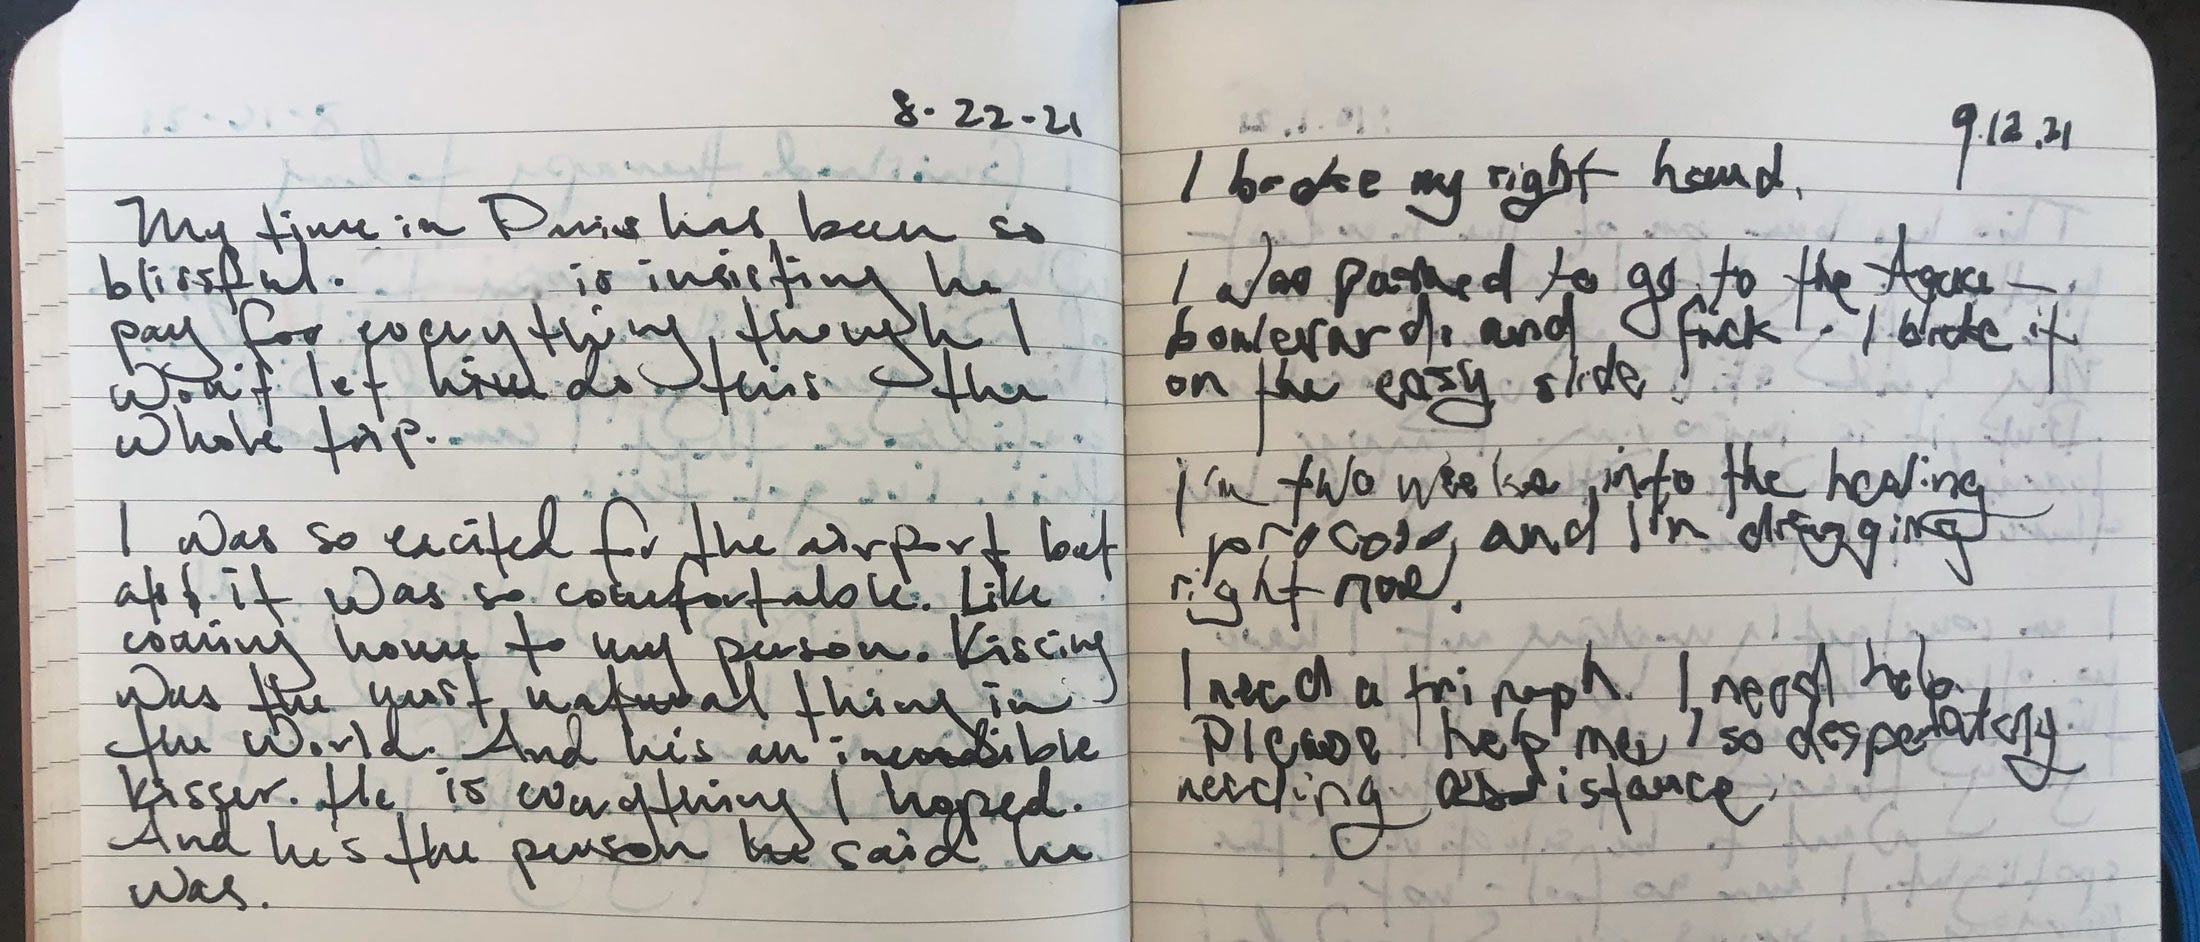 8-22-21
My time in Paris has been so
blissful. is insisting he
pay for everything though I
won't let him do this the
whole trip.
I was so excited for the airport but
it was so comfortable. Like
coming home to my person. Kissing
was the most natural thing in
the world. And his an incredible
kisser. He is everything I hoped.
And he's the person he said he
was.
9.12.21
I broke my right hand.
I was pushed to go to the Agua
boulevard. and fuck. I broke it
on the easy slide.
I'm two weeks into the healing
process, and I'm dragging
right now.
I need a triumph. I need help.
Please help me, I so desperately
needing assistance.